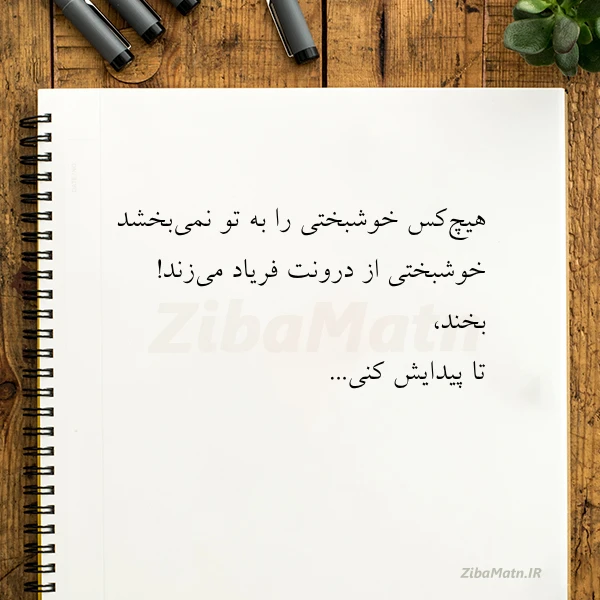 هیچ‌کس خوشبختی را به تو نمی‌بخشد
خوشبختی از درونت فریاد می‌زند!
بخند،
تا پیدایش کنی...
ZibaMatn
ZibaMatn.IR